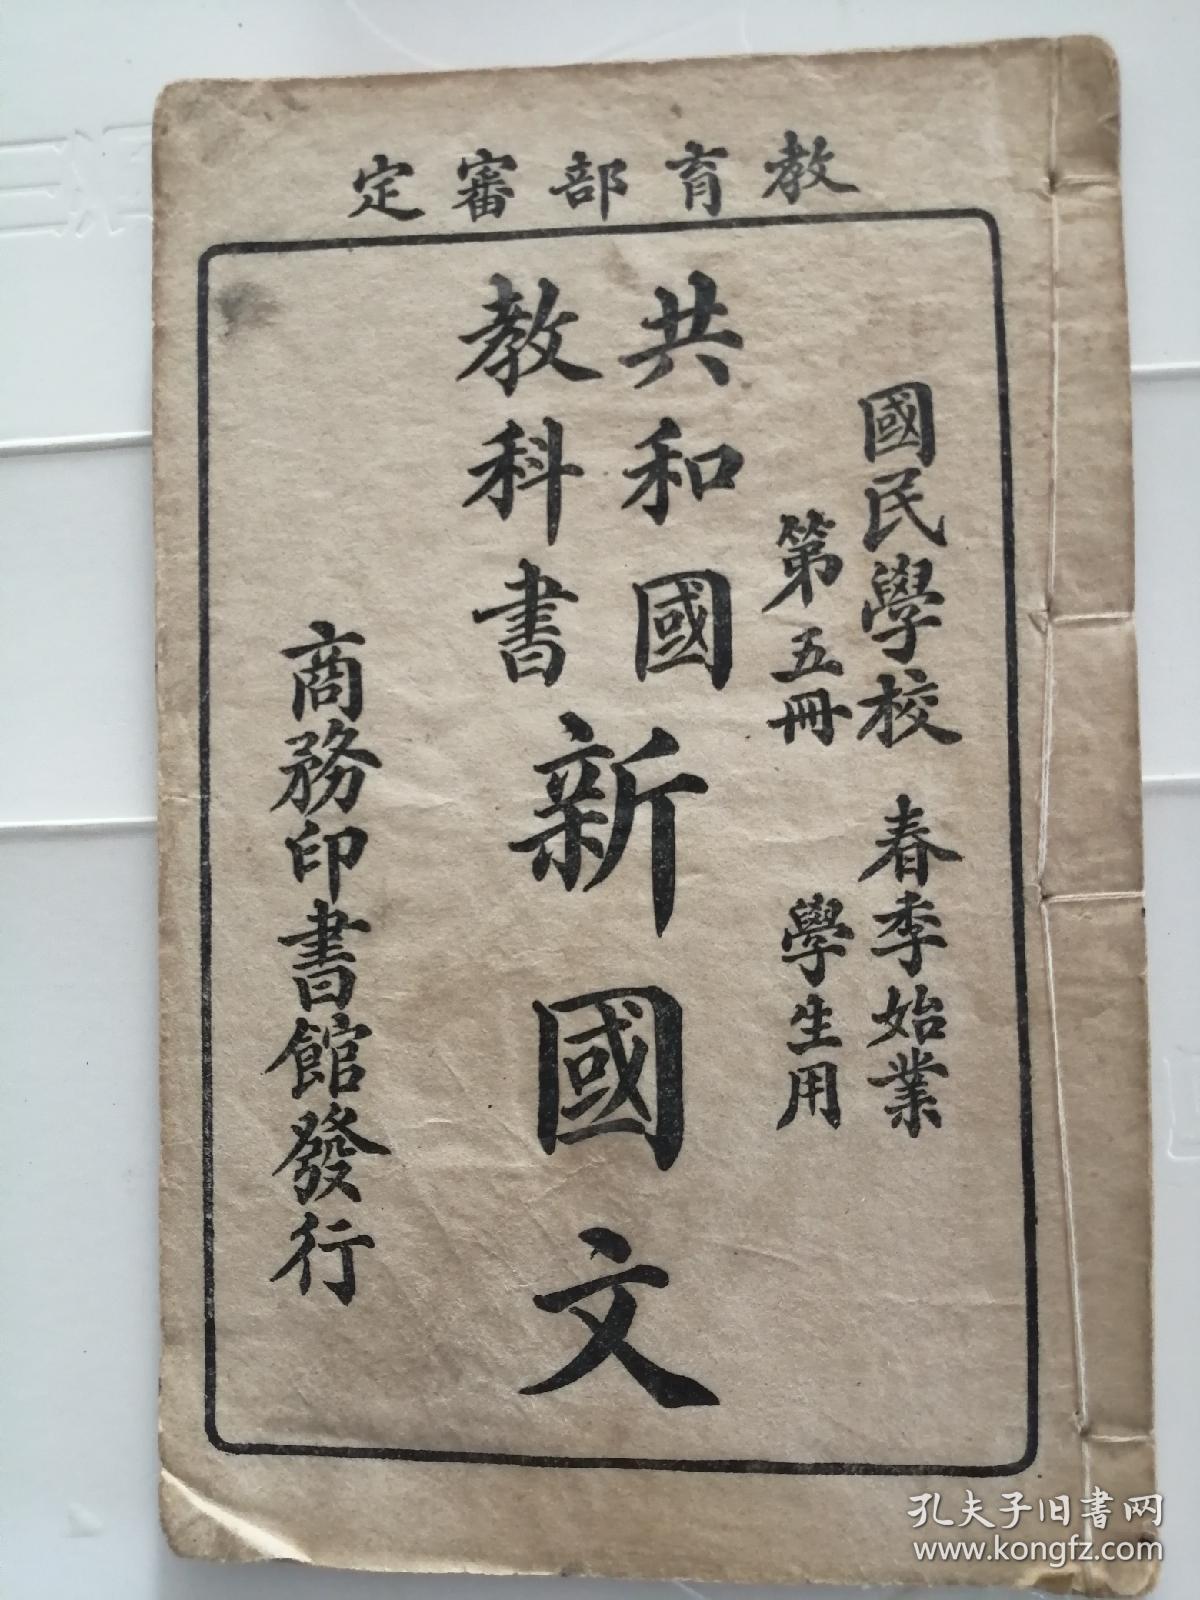 教育部審定
國民學校 春季始業
第五冊 學生用
共和國
教科書
新國文
商務印書館發行
孔夫子旧书网
www.kongfz.com